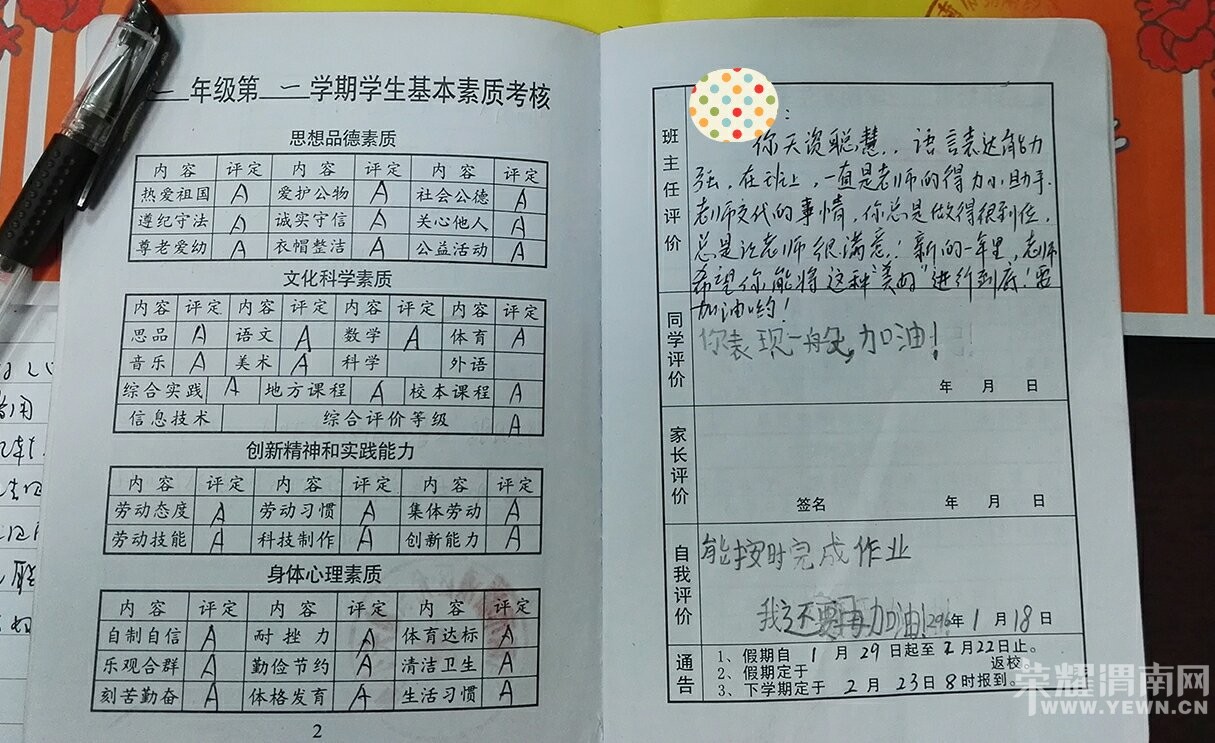 一 年级第 一 学期学生基本素质考核
思想品德素质
内容 评定 内容 评定 内容 评定
热爱祖国 A 爱护公物 A 社会公德 A
遵纪守法 A 诚实守信 A 关心他人 A
尊老爱幼 A 衣帽整洁 A 公益活动 A
文化科学素质
内容 评定 内容 评定 内容 评定 内容 评定
思品 A 语文 A 数学 A 体育 A
音乐 A 美术 A 科学 外语
综合实践 A 地方课程 A 校本课程 A
信息技术 综合评价等级 A
创新精神和实践能力
内容 评定 内容 评定 内容 评定
劳动态度 A 劳动习惯 A 集体劳动 A
劳动技能 A 科技制作 A 创新能力 A
身体心理素质
内容 评定 内容 评定 内容 评定
自制自信 A 耐挫力 A 体育达标 A
乐观合群 A 勤俭节约 A 清洁卫生 A
刻苦勤奋 A 体格发育 A 生活习惯 A
2
班主任评价
:
你天资聪慧，语言表达能力
强，在班上，一直是老师的得力小助手.
老师交代的事情，你总是做得很到位，
总是让老师很满意！新的一年里，老师
希望你能将这种"美好"进行到底！要
加油哟！
同学评价
你表现一般，加油！
年 月 日
家长评价
签名 年 月 日
自我评价
能按时完成作业
我还要再加油！
年 1 月 18 日
通告
1、假期自 1 月 29 日起至 2 月 22 日止。
2、假期定于 返校。
3、下学期定于 2 月 23 日 8 时报到。
荣耀渭南网
WWW.YEWN.CN